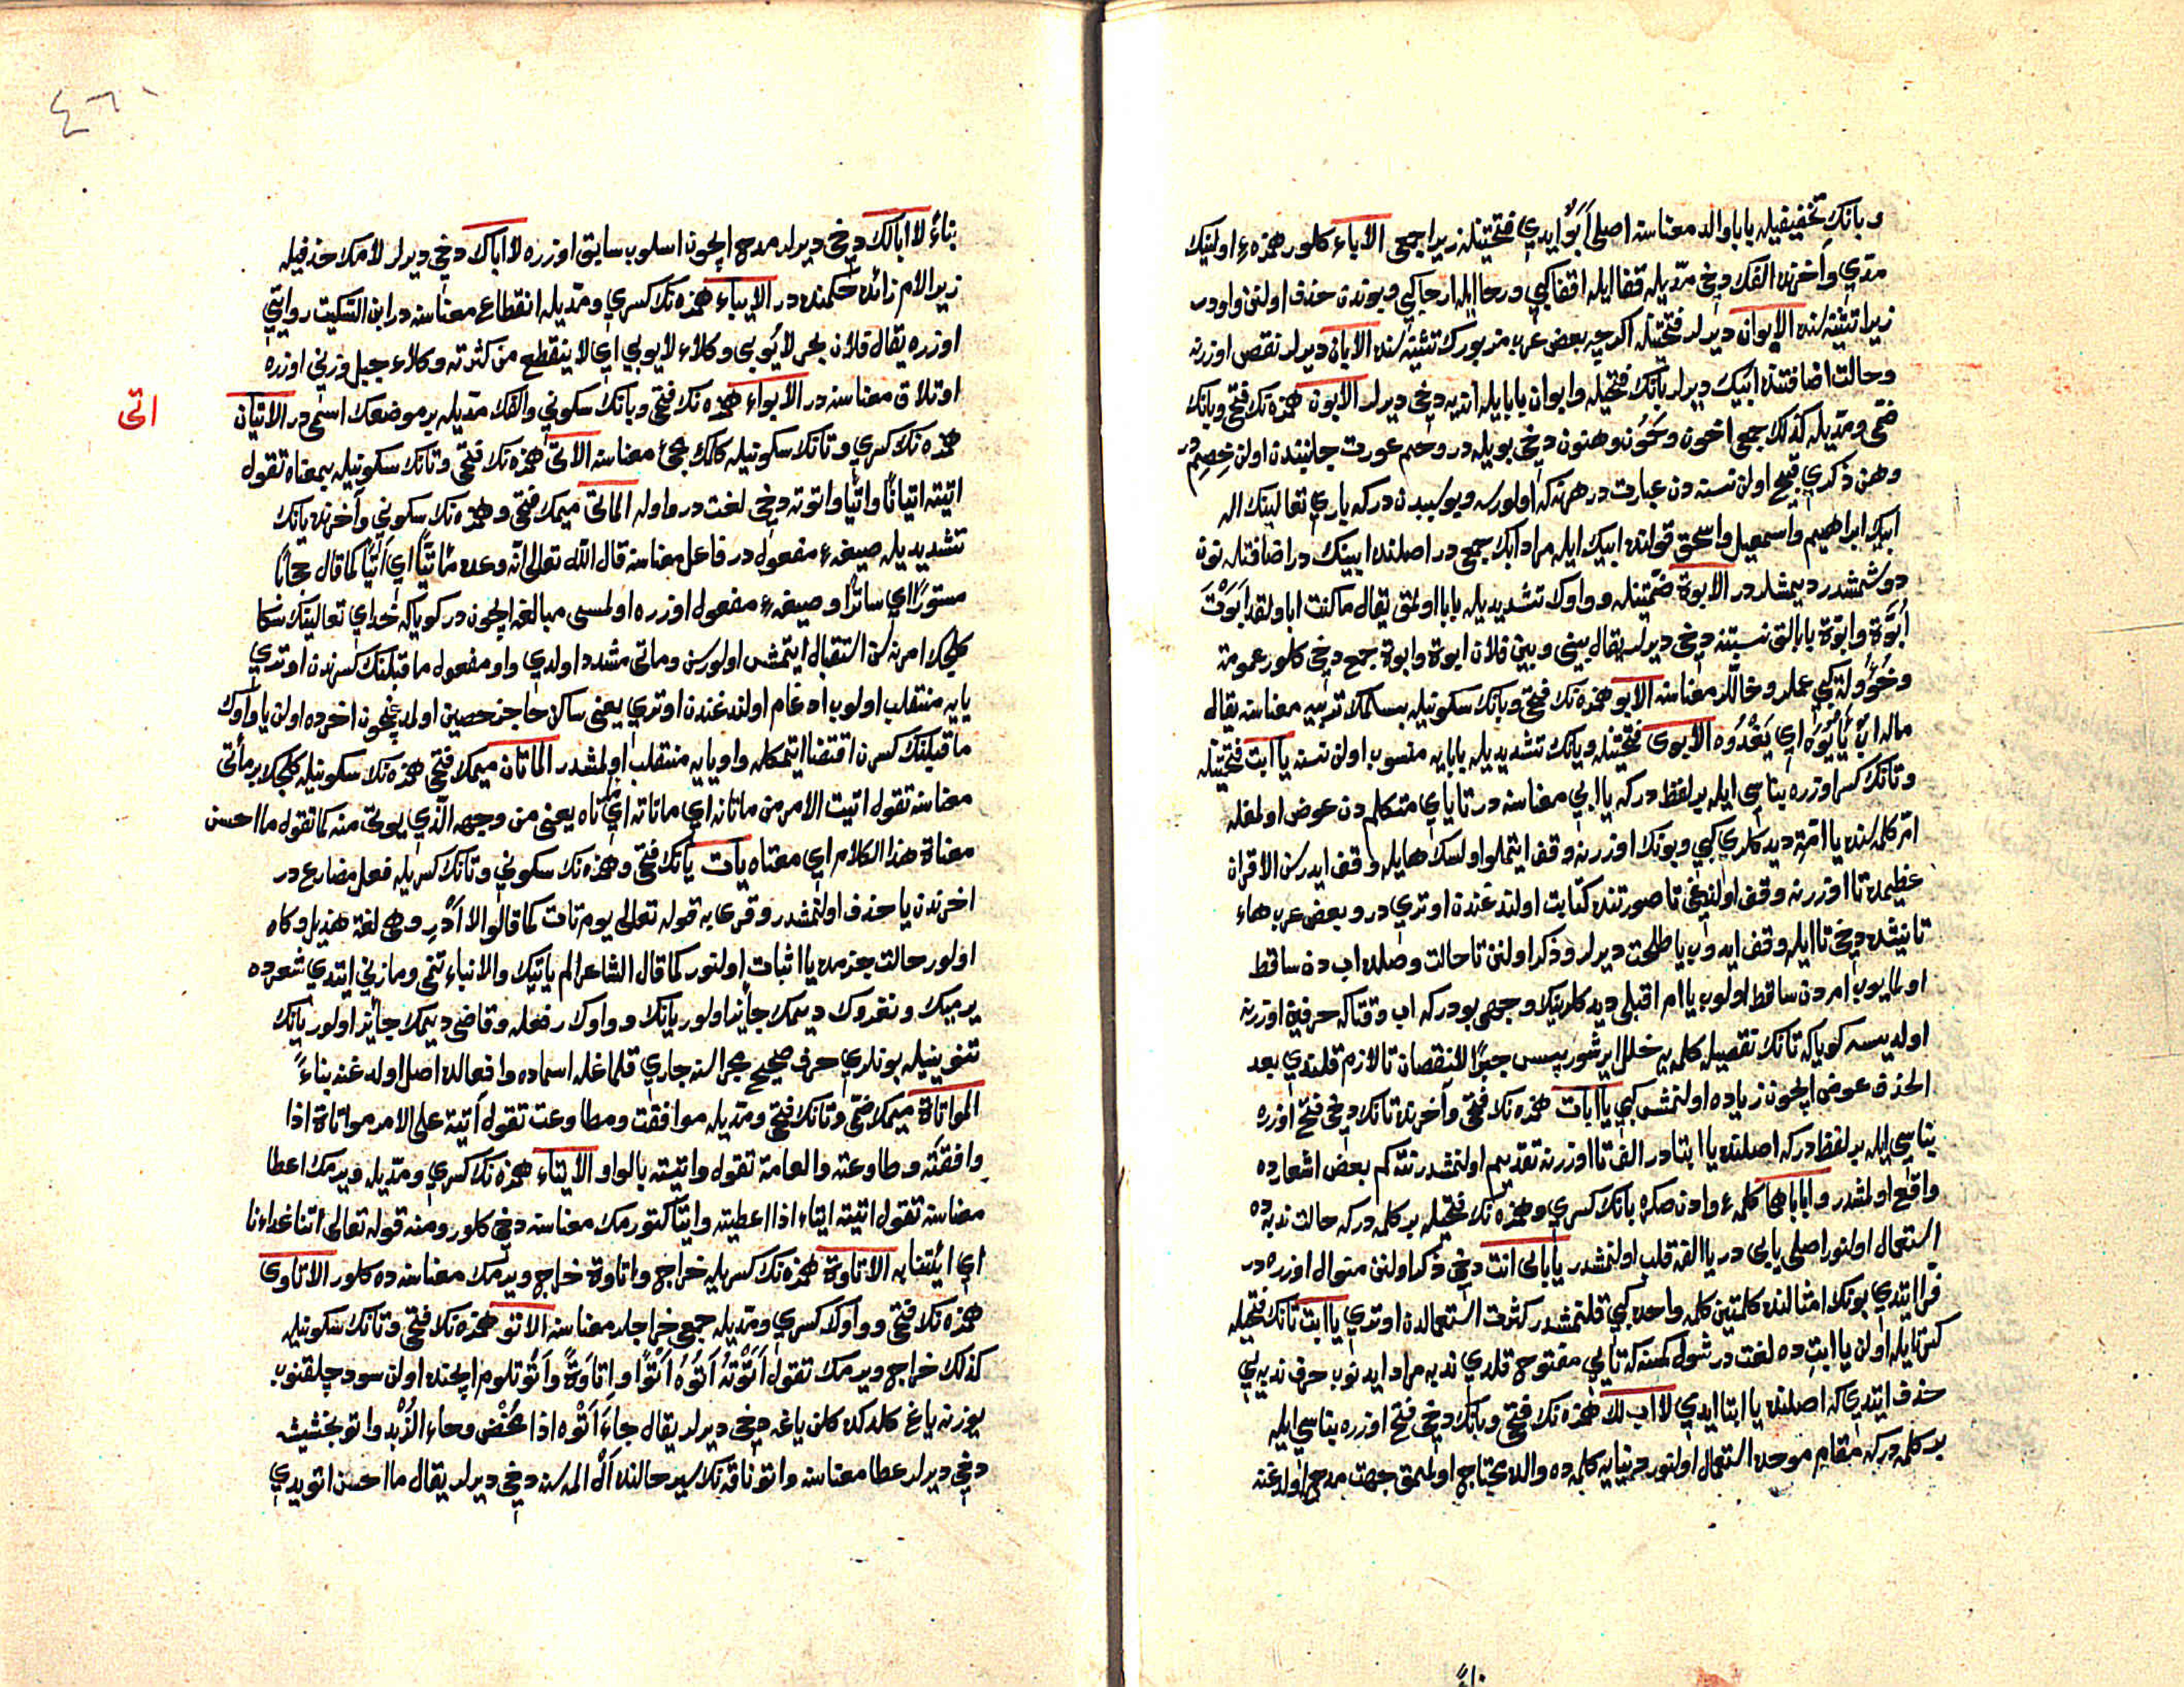 وبانك تخفيفيله بابا والد معناسنه اصلى اَبَوٌ ايدى فتحتينله زيرا جمعى الاباء كلور همزهء اولينك
مدى وآخرنده الفك دخى مديله قفا ايله اقفا كبى ورحا ايله ارحا كبى وبوندن حذف اولنن واودر
زيرا تثنيه‌سنده الابوان ديرلر فتحتينله اكرچه بعض عرب مزبورك تثنيه‌سنده الابان ديرلر نقص اوزرنه
وحالت اضافتنده ابيك ديرلر بانك فتحيله وابوان بابا ايله انايه دخى ديرلر الابون همزه‌نك فتحى وبانك
ضمى ومديله كذلك جمع اخون وحمون وهنون دخى بويله در وحم عورت جانبندن اولن خصم در
وهن ذكرى قبيح اولن نسنه‌دن عبارت در هر نه كه اولورسه وبو سببدن در كه بارى تعالينك اله
ابيك ابراهيم واسمعيل واسحق قولنده ابيك ايله مراد ابك جمع در اصلنده ابينك در اضافتله نون
دوشمشدر ديمشلر در الابوة ضمتينله وواوك تشديديله بابا اولمق يقال ما كنت ابا ولقد ابوت
اُبُوَّة وابوة بابالق نسبتنه دخى ديرلر يقال بينى وبين فلان ابوة وابوة جمع دخى كلور عمومة
وخؤولة كبى عملر وخاللر معناسنه الابو همزه‌نك فتحى وبانك سكونيله بسلمك تربيه معناسنه يقال
ماله اب يَأْبُوهُ اى يَغْذُوه الابوى فتحتينله ويانك تشديديله بابايه منسوب اولن نسنه يا ابت فتحتينله
وتانك كسرى اوزره بناسى ايله بر لفظ در كه يا ابى معناسنه در تا ياى متكلم دن عوض اولمغله
ام كلمه‌سنده يا امة ديدكلرى كبى وبونك اوزرينه وقف ايتملو اولسك ها ايله وقف ايدرسن الا قران
عظيمده تا اوزرنه وقف اولنديغى تا صورتنده كتابت اولندغندن اوترى در وبعض عرب هاء
تانيثده دخى تا ايله وقف ايدوب يا طلحت ديرلر وذكر اولنن تا حالت وصلده اب دن ساقط
اولمايوب ام دن ساقط اولوب يا ام اقبلى ديدكلرينك وجهى بودر كه اب وقتاكه حرفين اوزرنه
اولديسه كويا كه تانك تفصيل كلمه‌يه خلل ايرشورپيس جبرا للنقصان تا لازم قلندى بعد
الحذف عوض ايچون زياده اولنمش كبى يا ابات همزه‌نك فتحى وآخرنده تانك دخى فتح اوزره
بناسى ايله بر لفظ در كه اصلنده يا ابتا در الف تا اوزرنه تقديم اولنمشدر نته كم بعض اشعارده
واقع اولمشدر وابا باها كلمهء وادن صكره بانك كسرى وهمزه‌نك فتحيله بر كلمه در كه حالت ندبه‌ده
استعمال اولنور اصلى بابى در يا الفه قلب اولنمشدر يا بابى انت دخى ذكر اولنن منوال اوزره در
فرا ايتدى بونك امثالنده كلمتين كلمهء واحده كبى قلنمشدر كثرت استعمالدن اوترى يا ابت تانك فتحيله
كسر ايله اولن يا ابت ده لغت در شول كمسنه كه تايى مفتوح قلدى ندبه مراد ايدنوب حرف ندبه‌يى
حذف ايتدى كه اصلنده يا ابتا ايدى لا اب لك همزه‌نك فتحى وبانك دخى فتح اوزره بناسى ايله
بر كلمه در كه مقام مدحده استعمال اولنور دنيايه كلمه‌ده والده محتاج اولمق جهت مدح اولدغنه
بناءً
٤٦١
بناءً لا ابالك دخى ديرلر مدح ايچون اسلوب سابق اوزره لا اباك دخى ديرلر لامك حذفيله
زيرا لام زائده حكمنده در الايباء همزه‌نك كسرى ومديله انقطاع معناسنه در ابن السكيت روايتى
اوزره يقال فلان بحر لا يؤبى وكلاء لا يوبى اى لا ينقطع من كثرته وكلاء جبل وزنى اوزره
اوتلاق معناسنه در الابواء همزه‌نك فتحى وبانك سكونى والفك مديله بر موضعك اسمى در الاتيان
اتى
همزه‌نك كسرى وتانك سكونيله كلمك مجئ معناسنه الاتى همزه‌نك فتحى وتانك سكونيله بمعناه تقول
اتيته اتيانا واتيا واتوته دخى لغت در واوله الماتى ميمك فتحى وهمزه‌نك سكونى وآخرنده يانك
تشديديله صيغهء مفعول در فاعل معناسنه قال الله تعالى انه كان وعده ماتيا اى اتيا كما قال حجابا
مستورا اى ساترا وصيغهء مفعول اوزره اولمسى مبالغه ايچون در كويا كه خداى تعالينك سكا
كلجك امرنه سن استقبال ايتمش اولورسن وماتى مشدد اولدى واو مفعول ما قبلنك كسرندن اوترى
يايه منقلب اولوب ادغام اولندغندن اوترى يعنى ساكن حاجز حصين اولمدغيچون اخرده اولن يا واوك
ما قبلنك كسرن اقتضا ايتمكله واو يايه منقلب اولمشدر الماتان ميمك فتحى همزه‌نك سكونيله كلجك ير مأتى
معناسنه تقول اتيت الامر من ماتاته اى ماتاته اى متاه يعنى من وجهه الذى يوتى منه كما تقول ما احسن
معناة هذا الكلام اى معناه يات يانك فتحى وهمزه‌نك سكونى وتانك كسريله فعل مضارع در
اخرندن يا حذف اولنمشدر وقرى به قوله تعالى يوم تات كما قالوا لا ادر وهى لغة هذيل وكاه
اولور حالت جزمده يا اثبات اولنور كما قال الشاعر الم ياتيك والانباء تنمى ومازنى ايتدى شعرده
يرميك ونغزوك ديمك جايز اولور يانك وواوك رفعله وقاضى ديمك جايز اولور يانك
تنوينيله بونلرى حرف صحيح مجراسنه جارى قلماغله اسماده وافعالده اصل اولدغنه بناءً
المواتاة ميمك ضمى وتانك فتحى ومديله موافقت ومطاوعت تقول آتيته على الامر مواتاة اذا
وافقته وطاوعته والعامة تقول واتيته بالواو الايتاء همزه‌نك كسرى ومديله ويرمك اعطا
معناسنه تقول اتيته ايتاء اذا اعطيته وايتا كتورمك معناسنه دخى كلور ومنه قوله تعالى اتنا غداءنا
اى ائتنا به الاتاوة همزه‌نك كسريله خراج واتاوة خراج ويرمك معناسنه ده كلور الاتاوى
همزه‌نك فتحى وواوك كسرى ومديله جمع خراجلر معناسنه الاتو همزه‌نك فتحى وتانك سكونيله
كذلك خراج ويرمك تقول اَتَوْتُهُ اَتُوهُ اَتْوًا واِتاوَةً واَتْو تلوم ايچنده اولن سود چلقنوب
يوزنه ياغ كلدكده كلن ياغه دخى ديرلر يقال جاءَ اَتْوُه اذا مُخِضَ وجاء الزُّبْد واتو بخشيش
دخى ديرلر عطا معناسنه واتو ناقه‌نك سير حالنده ال المه‌سنه دخى ديرلر يقال ما احسن اتو يدى